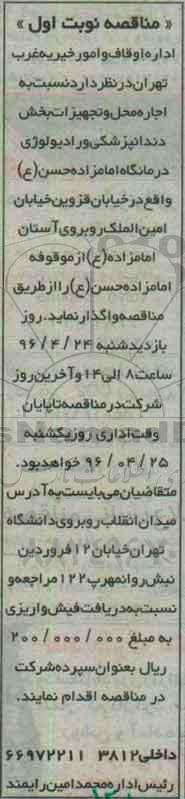 « مناقصه نوبت اول »
اداره اوقاف و امور خیریه غرب
تهران در نظر دارد نسبت به
اجاره محل و تجهیزات بخش
دندانپزشکی و رادیولوژی
درمانگاه امامزاده حسن (ع)
واقع در خیابان قزوین خیابان
امین الملک روبروی آستان
امامزاده (ع) از موقوفه
امامزاده حسن (ع) را از طریق
مناقصه واگذار نماید. روز
بازدید شنبه ۲۴ / ۴ / ۹۶
ساعت ۸ الی ۱۴ و آخرین روز
شرکت در مناقصه تا پایان
وقت اداری روز یکشنبه
۲۵ / ۰۴ / ۹۶ خواهد بود.
متقاضیان می بایست به آدرس
میدان انقلاب روبروی دانشگاه
تهران خیابان ۱۲ فروردین
نبش روانمهر پ ۱۲۲ مراجعه و
نسبت به دریافت فیش واریزی
به مبلغ ۲۰۰ / ۰۰۰ / ۰۰۰
ریال بعنوان سپرده شرکت
در مناقصه اقدام نمایند.
۶۶۹۷۲۲۱۱ داخلی ۳۸۱۲
رئیس اداره محمد امین رایمند